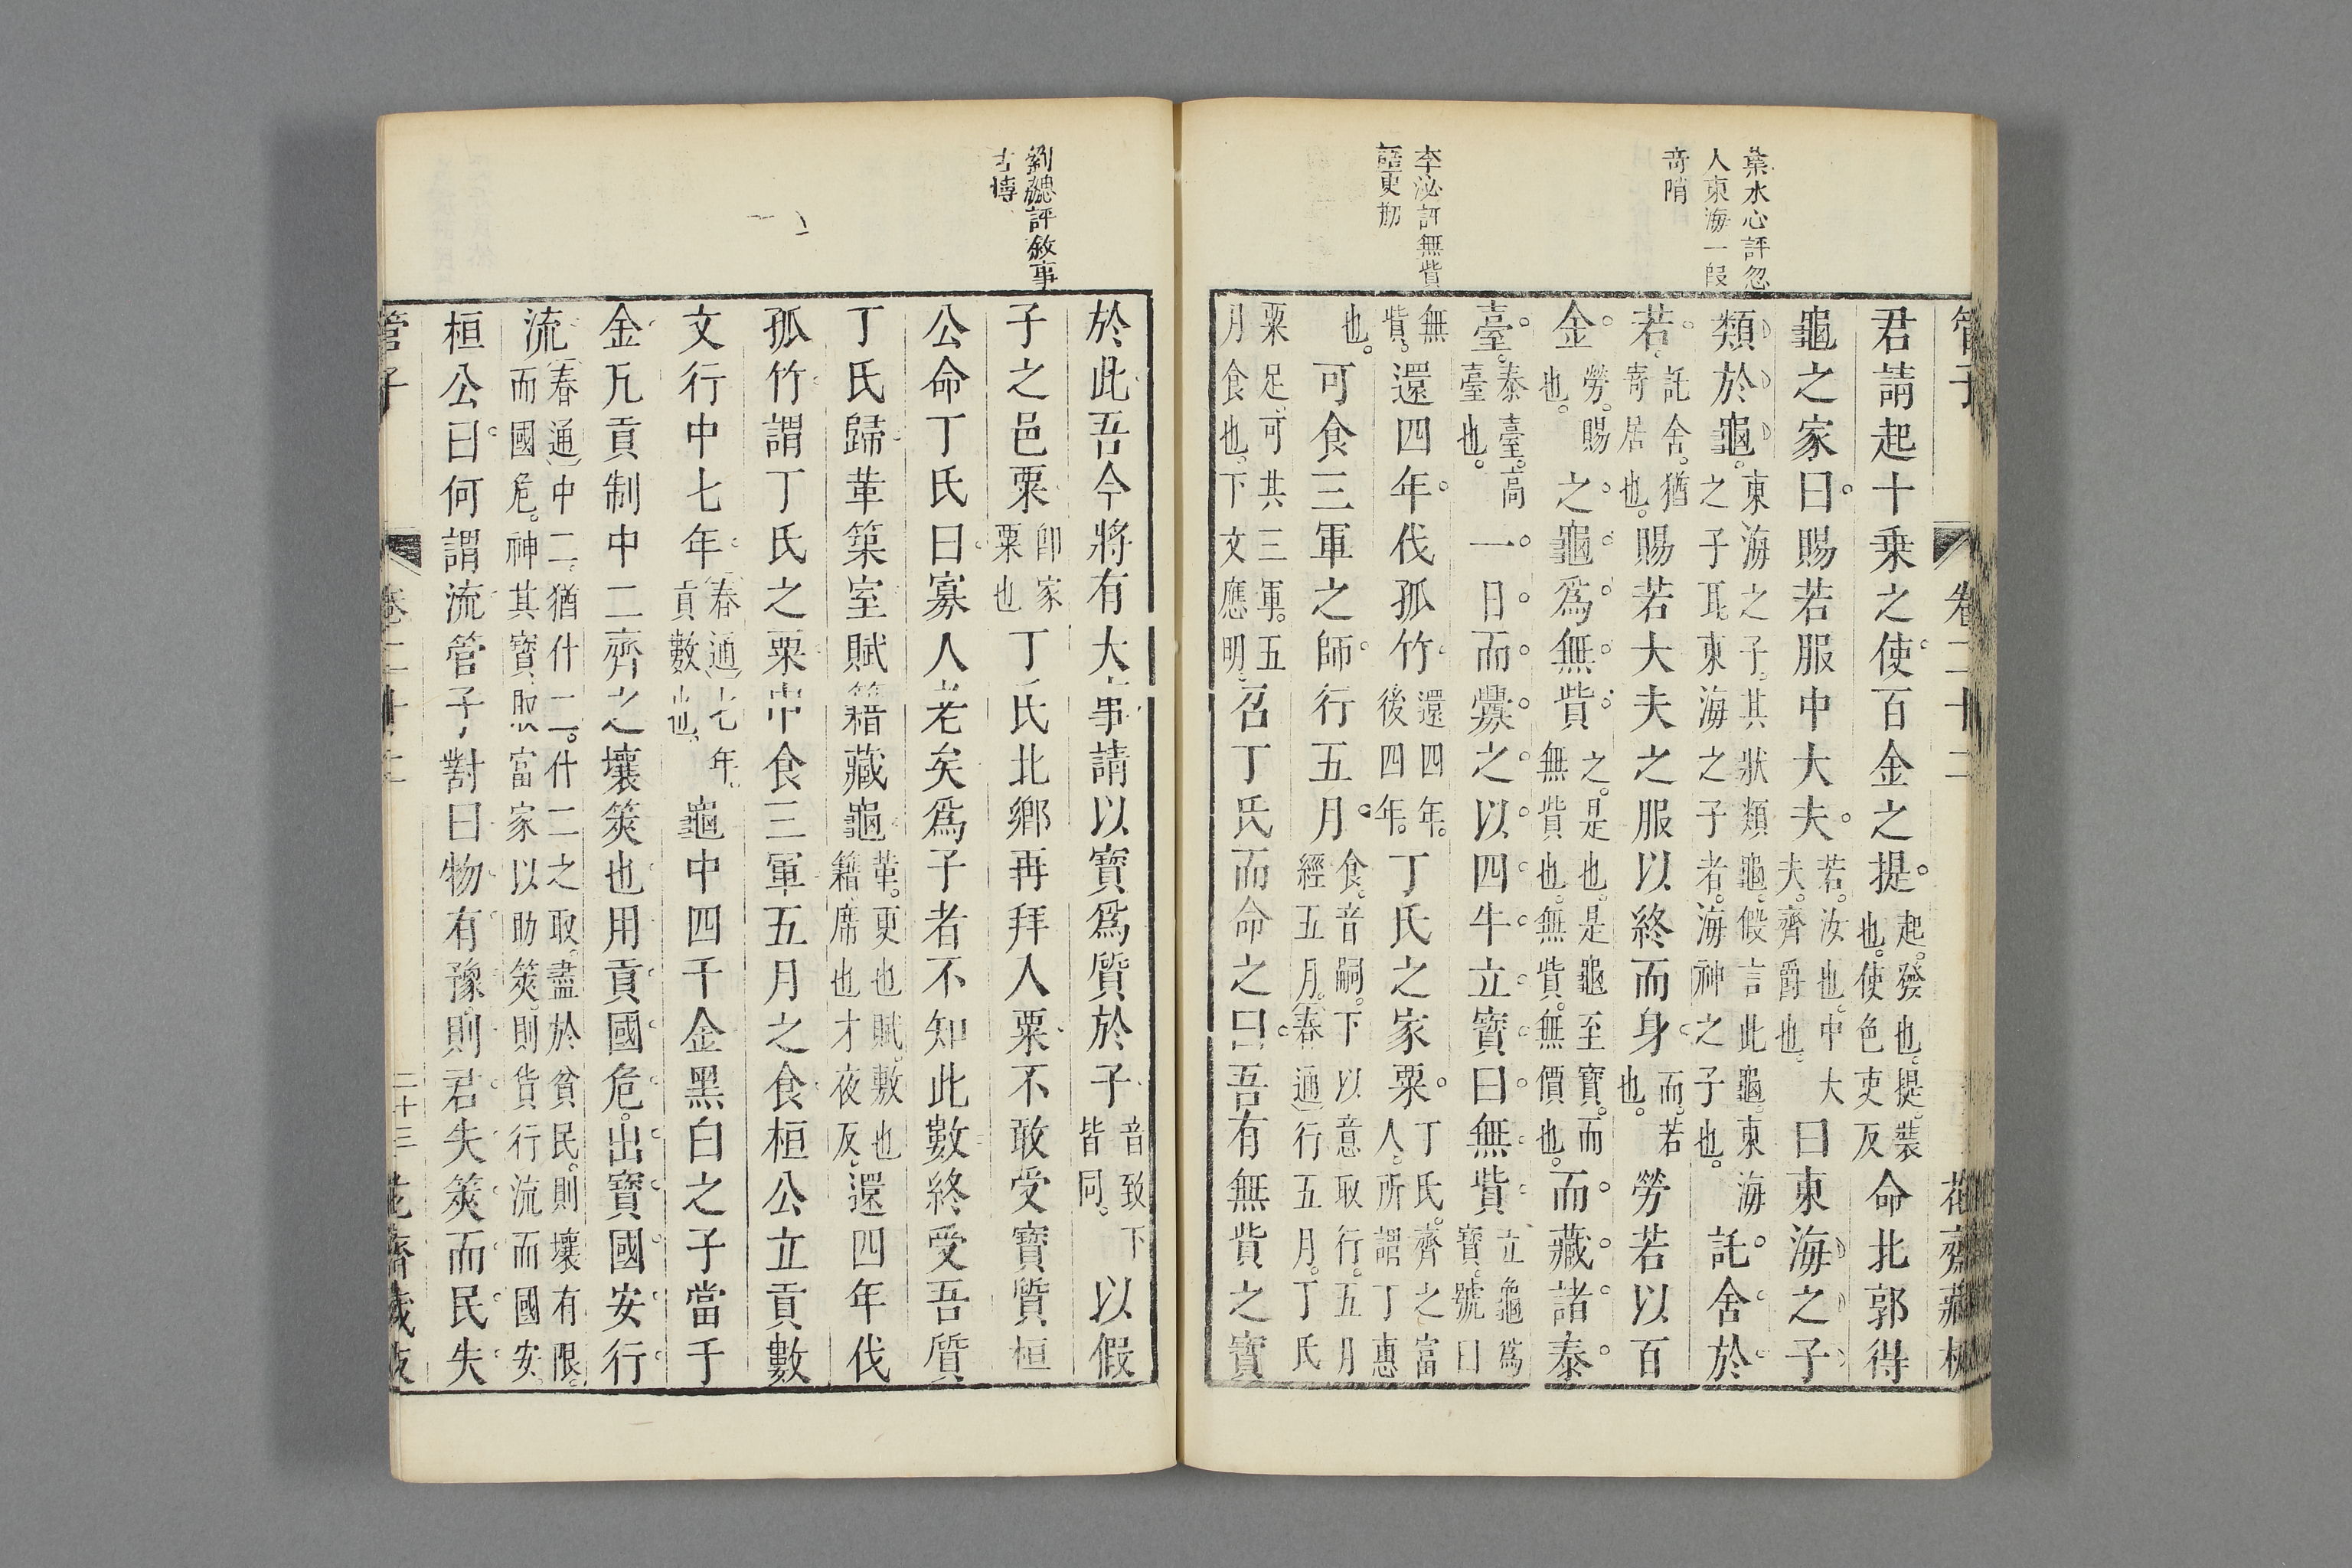 葉水心評忽
人東海一段
奇哨
李泌評無貲
語更妙
管子
卷二十二
花齋藏板
君請起十乗之使百金之提起發也提裝也使色吏反命北郭得
龜之家曰賜若服中大夫若汝也中大夫齊爵也曰東海之子
類於龜東海之子其狀類龜假言此龜東海之子耳東海之子者海神之子也託舍於
若託舍猶寄居也賜若大夫之服以終而身而若也勞若以百
金勞賜也之龜爲無貲之是也是龜至寶而無貲也無貲無價也而藏諸泰
臺泰臺高臺也一日而釁之以四牛立寶曰無貲立龜爲寶號曰
無貲還四年伐孤竹還四年後四年丁氏之家粟丁氏齊之富人所謂丁惠
也可食三軍之師行五月食音嗣下以意取行五月經五月春通行五月丁氏
粟足可共三軍五月食也下文應明召丁氏而命之曰吾有無貲之寶
劉勰評敘事
古博
於此吾今將有大事請以寶爲質於子音致下皆同以假
子之邑粟卽家粟也丁氏北鄉再拜入粟不敢受寶質桓
公命丁氏曰寡人老矣爲子者不知此數終受吾質
丁氏歸革築室賦籍藏龜革更也賦敷也籍席也才夜反還四年伐
孤竹謂丁氏之粟中食三軍五月之食桓公立貢數
文行中七年春通七年貢數也龜中四千金黑白之子當千
金凡貢制中二齊之壤筴也用貢國危出寶國安行
流春通中二猶什二什二之取盡於貧民則壤有限而國危神其寶服富家以助筴則貨行流而國安
桓公曰何謂流管子對曰物有豫則君失筴而民失
管子
卷二十二
二十三
花齋藏板